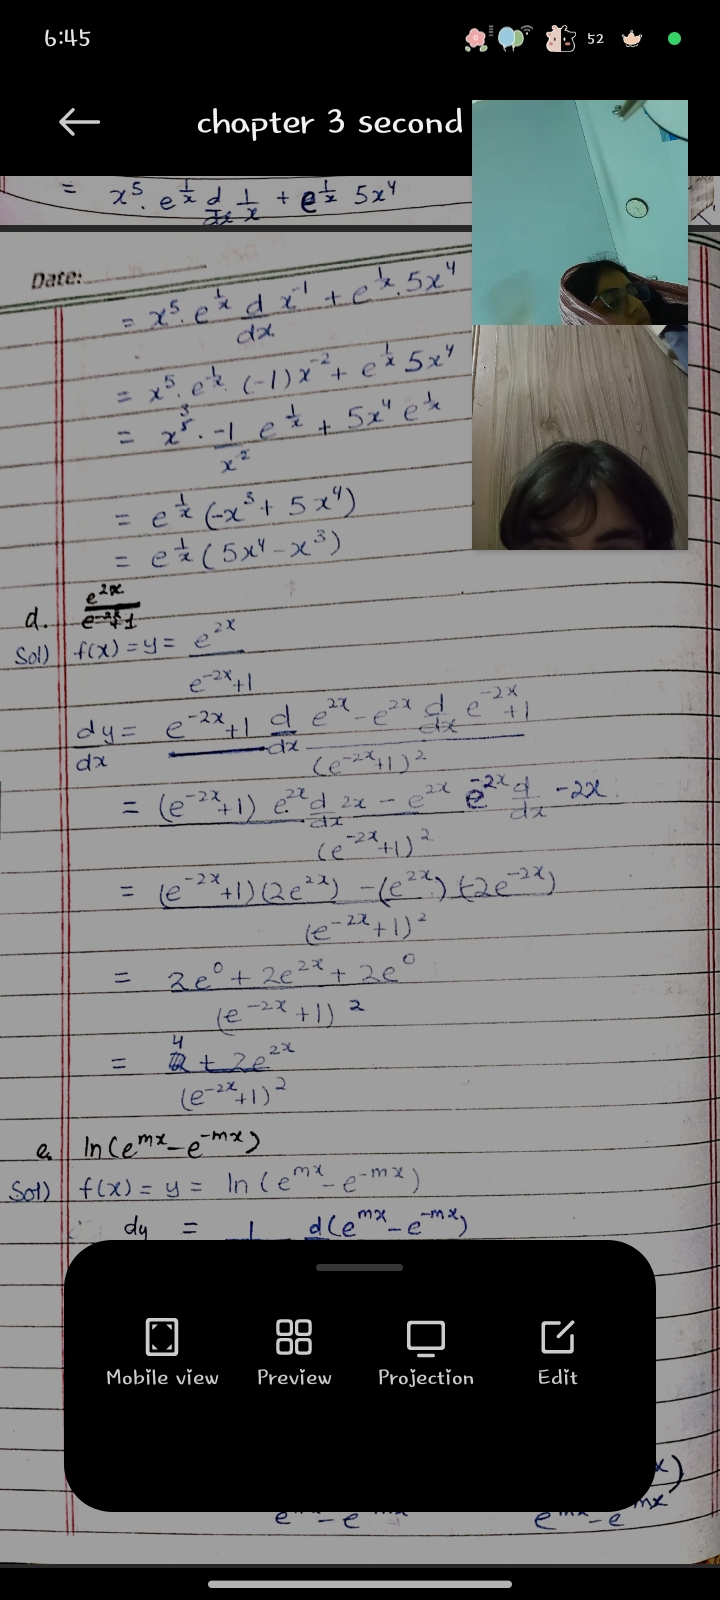 6:45
52
chapter 3 second
= x⁵. e^(1/x) d/dx 1/x + e^(1/x) 5x⁴
Date:
= x⁵. e^(1/x) d/dx x⁻¹ + e^(1/x). 5x⁴
= x⁵. e^(1/x). (-1) x⁻² + e^(1/x) 5x⁴
= x⁵ ³ . -1/x² e^(1/x) + 5x⁴ e^(1/x)
= e^(1/x) (-x³ + 5x⁴)
= e^(1/x) (5x⁴ - x³)
d. e^(2x)/(e^(-2x)+1)
Sol) f(x) = y = e^(2x)/(e^(-2x)+1)
dy/dx = (e^(-2x)+1 d/dx e^(2x) - e^(2x) d/dx e^(-2x)+1)/(e^(-2x)+1)²
= ((e^(-2x)+1) e^(2x). d/dx 2x - e^(2x) e^(-2x) d/dx -2x)/(e^(-2x)+1)²
= ((e^(-2x)+1)(2e^(2x)) - (e^(2x))(-2e^(-2x)))/(e^(-2x)+1)²
= (2e⁰ + 2e^(2x) + 2e⁰)/(e^(-2x)+1)²
= (4 + 2e^(2x))/(e^(-2x)+1)²
e. ln(e^(mx) - e^(-mx))
Sol) f(x) = y = ln(e^(mx) - e^(-mx))
dy = 1 d(e^(mx) - e^(-mx))
Mobile view
Preview
Projection
Edit
x)
e^(mx) - e
e^(mx) - e^(mx)